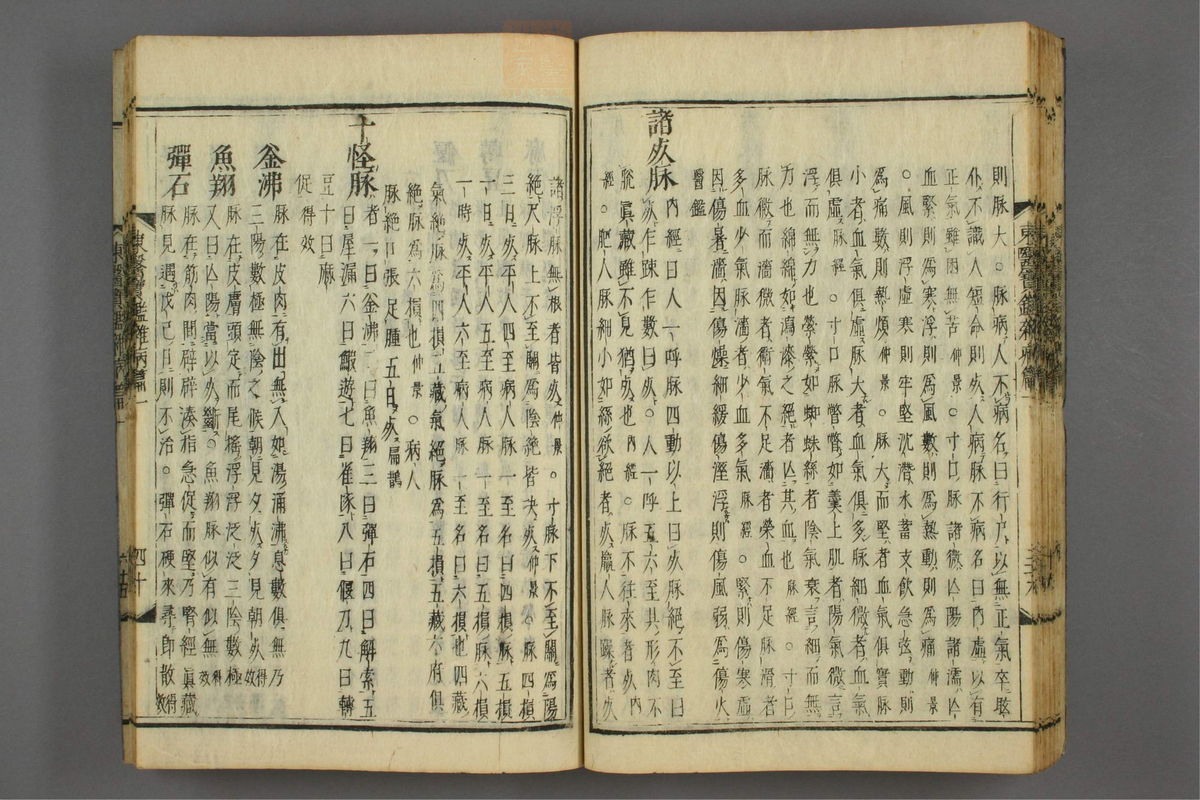 則脉大○脉病人不病名曰行尸以無正氣卒眩
仆不識人短命則死人病脉不病名曰內虛以有
正氣雖困無苦仲景○寸口脉諸微亡陽諸濡亡
血緊則為寒浮則為風數則為熱動則為痛仲景
○風則浮虛寒則牢堅沈潛水蓄支飲急弦動則
為痛數則熱煩仲景○脉大而堅者血氣俱實脉
小者血氣俱虛脉大者血氣俱多脉細微者血氣
俱虛脉經○寸口脉瞥瞥如羹上肌者陽氣微言
浮而無力也縈縈如蜘蛛絲者陰氣衰言細而無
力也綿綿如瀉漆之絕者亡其血也脉經○寸口
脉微而濇微者衛氣不足濇者榮血不足脉滑者
多血少氣脉濇者少血多氣脉經○緊則傷寒虛
因傷暑濇因傷燥細緩傷溼浮則傷風弱為傷火
醫鑑
諸死脉 內經曰人一呼脉四動以上曰死脉絕不至曰
死乍踈乍數曰死○人一呼五六至其形肉不
脫眞藏雖不見猶死也內經○脉不往來者死內
經○肥人脉細小如絲欲絕者死羸人脉躁者死
諸浮脉無根者皆死仲景○寸脉下不至關為陽
絕尺脉上不至關為陰絕皆決死仲景○脉四損
三日死平人四至病人脉一至名曰四損脉五損
一日死平人五至病人脉一至名曰五損脉六損
一時死平人六至病人脉一至名曰六損也四藏
氣絕脉為四損五藏氣絕脉為五損五藏六府俱
絕脉為六損也仲景○病人
脉絕口張足腫五日死扁鵲
十怪脉 者一曰釜沸二曰魚翔三曰彈石四曰解索五
曰屋漏六曰蝦遊七曰雀啄八曰偃刀九曰轉
豆十曰麻
促得效
釜沸 脉在皮肉有出無入如湯涌沸息數俱無乃
三陽數極無陰之候朝見夕死夕見朝死得效
魚翔 脉在皮膚頭定而尾搖浮浮泛泛三陰數極
又曰亡陽當以死斷○魚翔脉似有似無得效
彈石 脉在筋肉間辟辟湊指急促而堅乃腎經眞藏
脉見遇戊己日則不治○彈石硬來尋即散得效